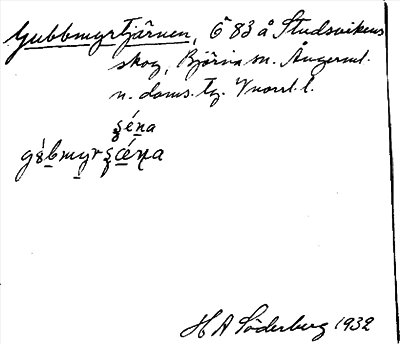 Gubbmyrtjärnen, 6 83 å Studsvikens
skog, Björna sn. Ångerml.
n. doms. tg. Vnorrl. l.
ʂéna
gɞ́bmyrʂéɳa
H A Söderberg 1932